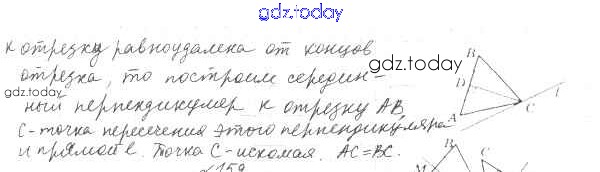 gdz.today
к отрезку равноудалена от концов
отрезка, то построим середин-
ный перпендикуляр к отрезку AB
C-точка пересечения этого перпендикуляра
и прямой l. Точка C-искомая. AC=BC.
gdz.today
gdz.today
B
D
A
C
l
№159
M
B
C